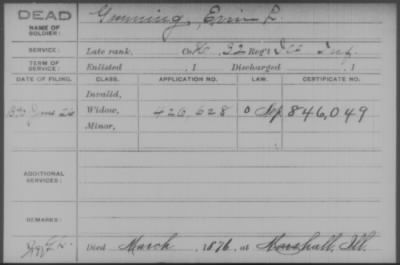 DEAD
NAME OF SOLDIER: Gunning, Ervin L.
SERVICE: Late rank, Co. K, 32 Reg't Ill Inf
TERM OF SERVICE: Enlisted , 1 Discharged , 1
DATE OF FILING. CLASS. APPLICATION NO. LAW. CERTIFICATE NO.
Invalid,
June 26 Widow, 426,628 846,049
Minor,
ADDITIONAL SERVICES:
REMARKS:
Died March , 1876, at Marshall, Ill.